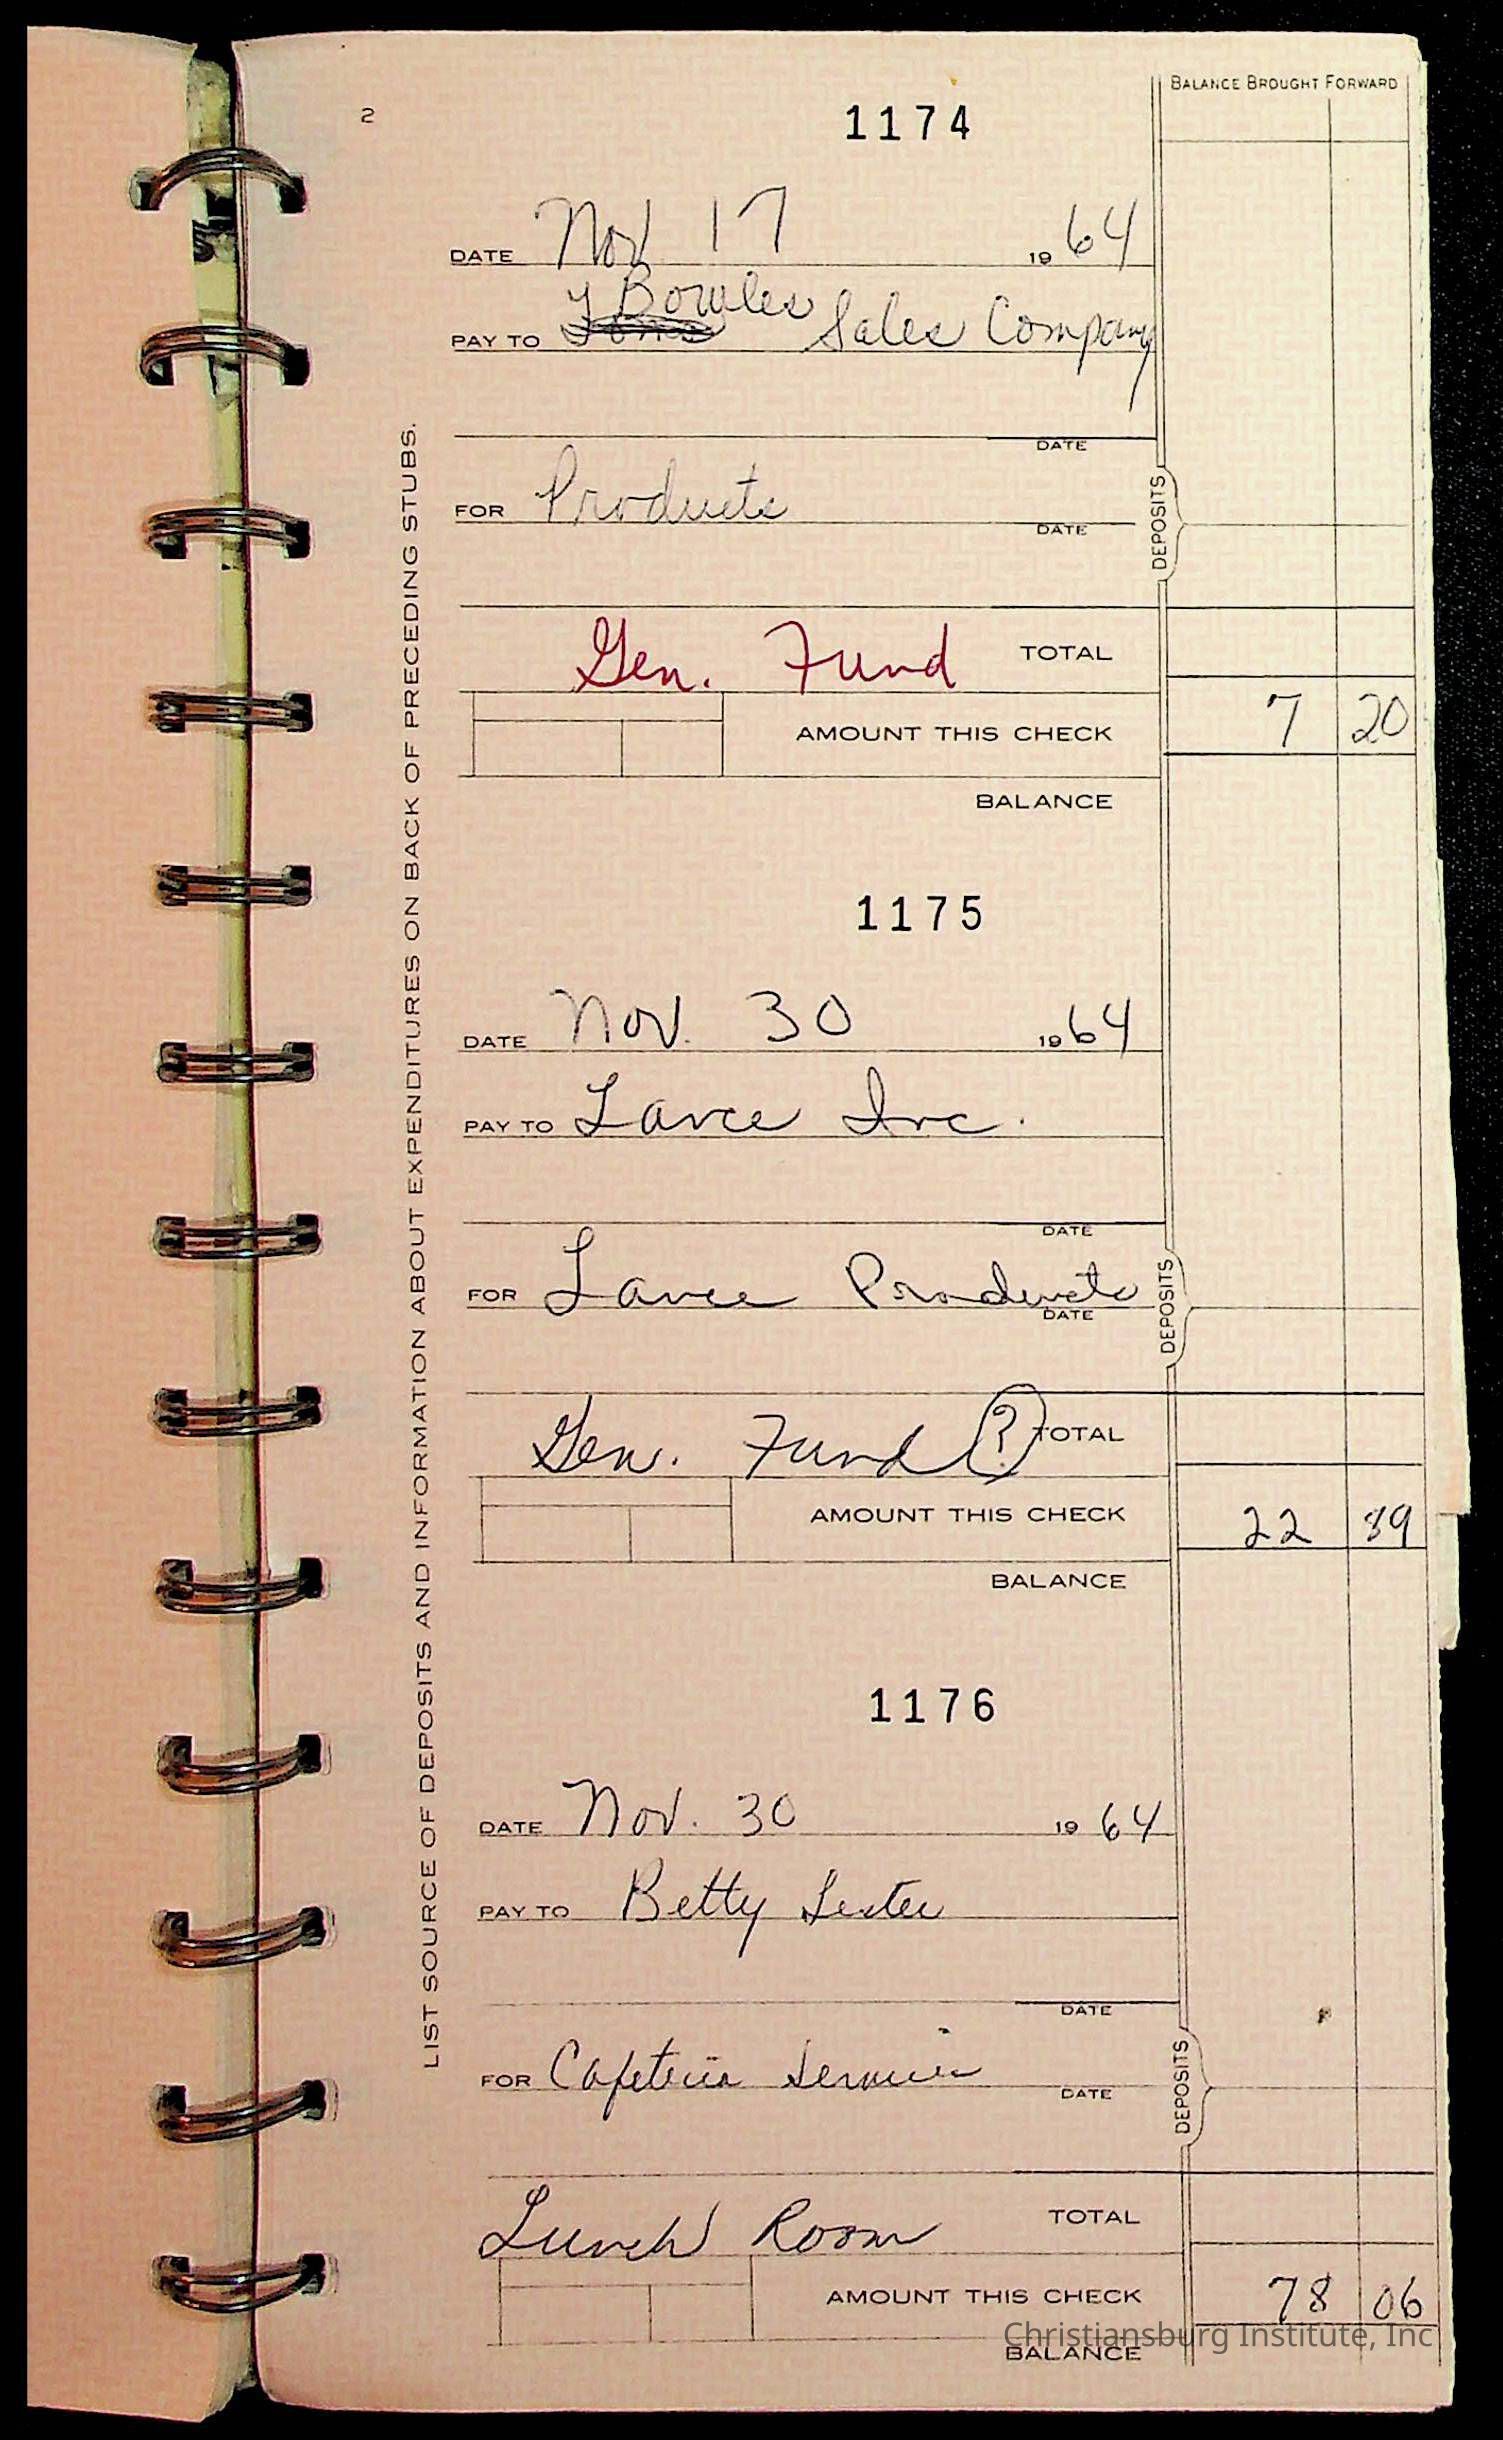 2
BALANCE BROUGHT FORWARD
1174
DATE Nov 17 1964
Bowles
PAY TO Sales Company
DATE
FOR Products
DATE
DEPOSITS
Gen. Fund TOTAL
AMOUNT THIS CHECK 7 20
BALANCE
LIST SOURCE OF DEPOSITS AND INFORMATION ABOUT EXPENDITURES ON BACK OF PRECEDING STUBS.
1175
DATE Nov. 30 1964
PAY TO Lance Inc.
DATE
FOR Lance Products
DATE
DEPOSITS
Gen. Fund ? TOTAL
AMOUNT THIS CHECK 22 89
BALANCE
1176
DATE Nov. 30 1964
PAY TO Betty Lester
DATE
FOR Cafeteria Services
DATE
DEPOSITS
Lunch Room TOTAL
AMOUNT THIS CHECK 78 06
Christiansburg Institute, Inc
BALANCE